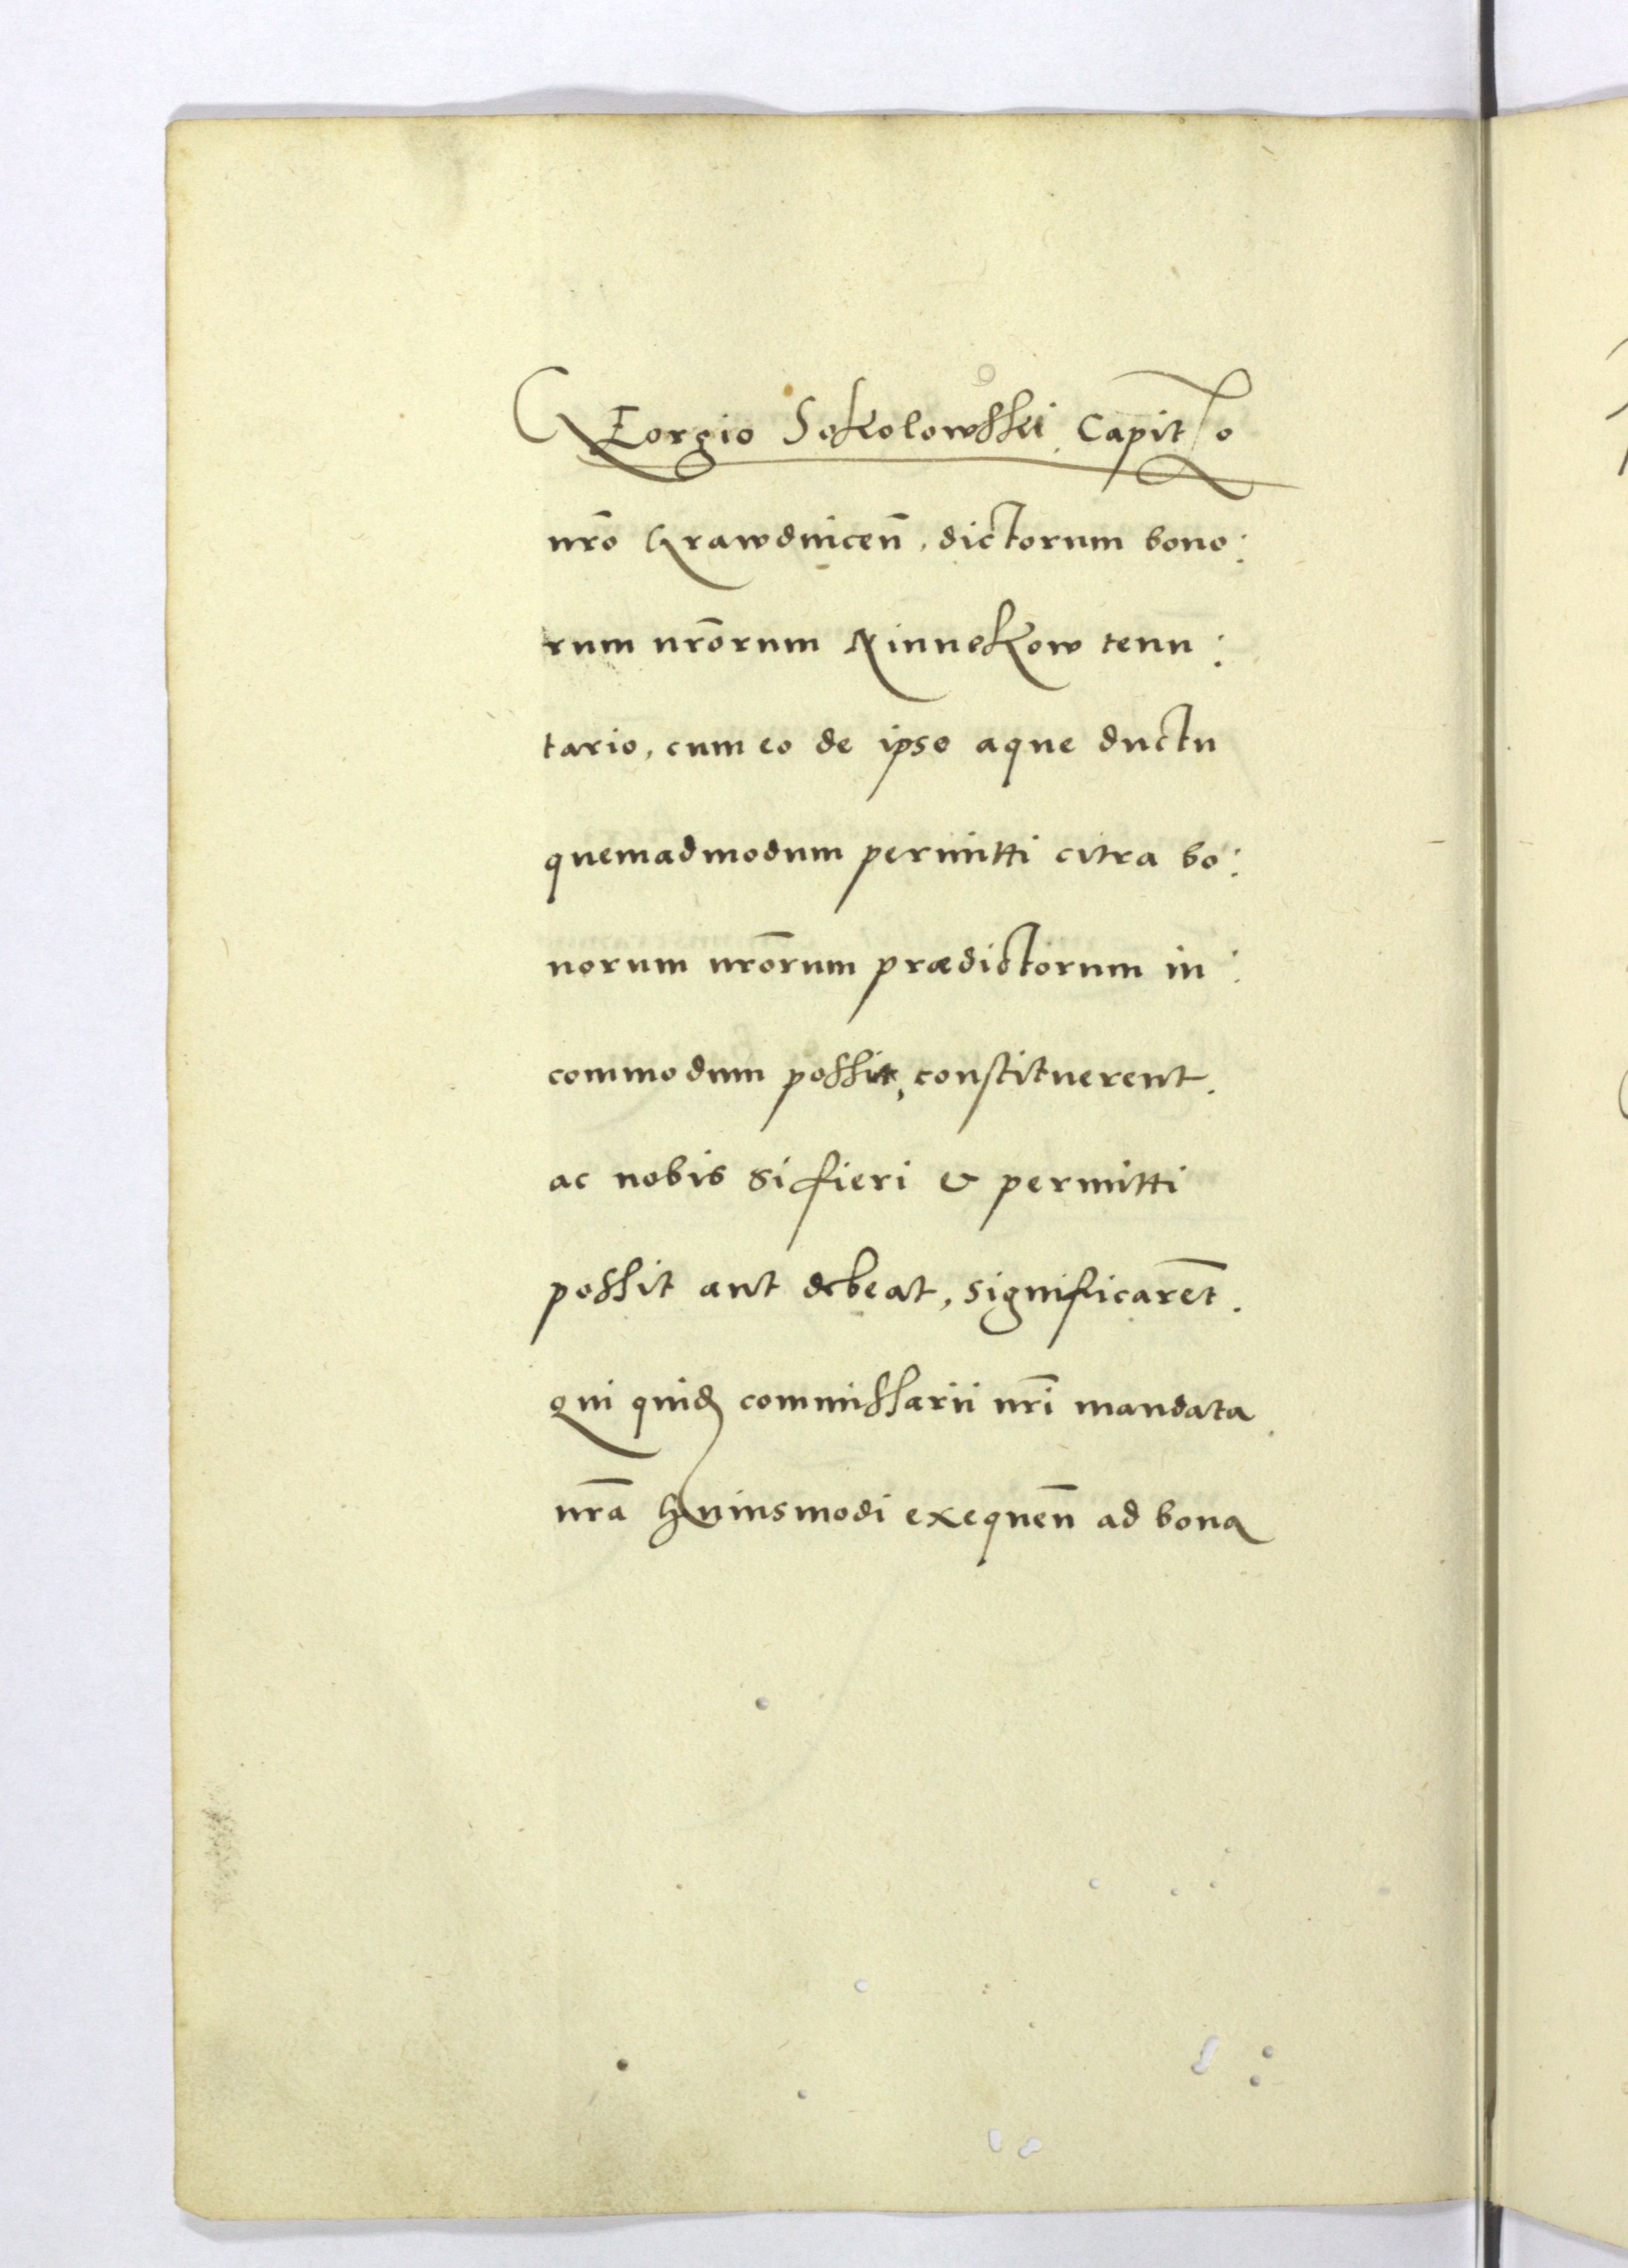 GEorgio Sokolowsski, Capit o
nr̄o Grawdnicen̄, dictorum bono:
rum nr̄orum Ninnekow tenu:
tario, cum eo de ipso aque ductu
quemadmodum permitti citra bo:
norum nr̄orum prædictorum in:
commodum possit, constituerent.
ac nobis si fieri & permitti
possit aut debeat, significaren̄t.
qui quidē commissarii nr̄i mandata
nr̄a huiusmodi exequen̄ ad bona